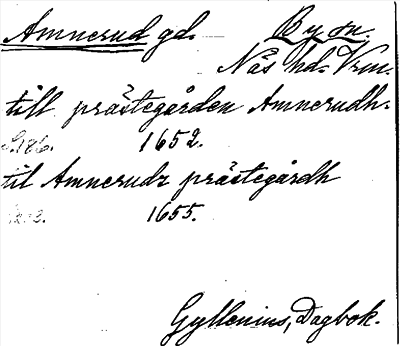 Amnerud gd. By sn.
Näs hd. Vrm.
till prästegården Amnerudh.
S. 186. 1652.
til Amnerudz prästegårdh
1655.
Gyllenius, Dagbok.